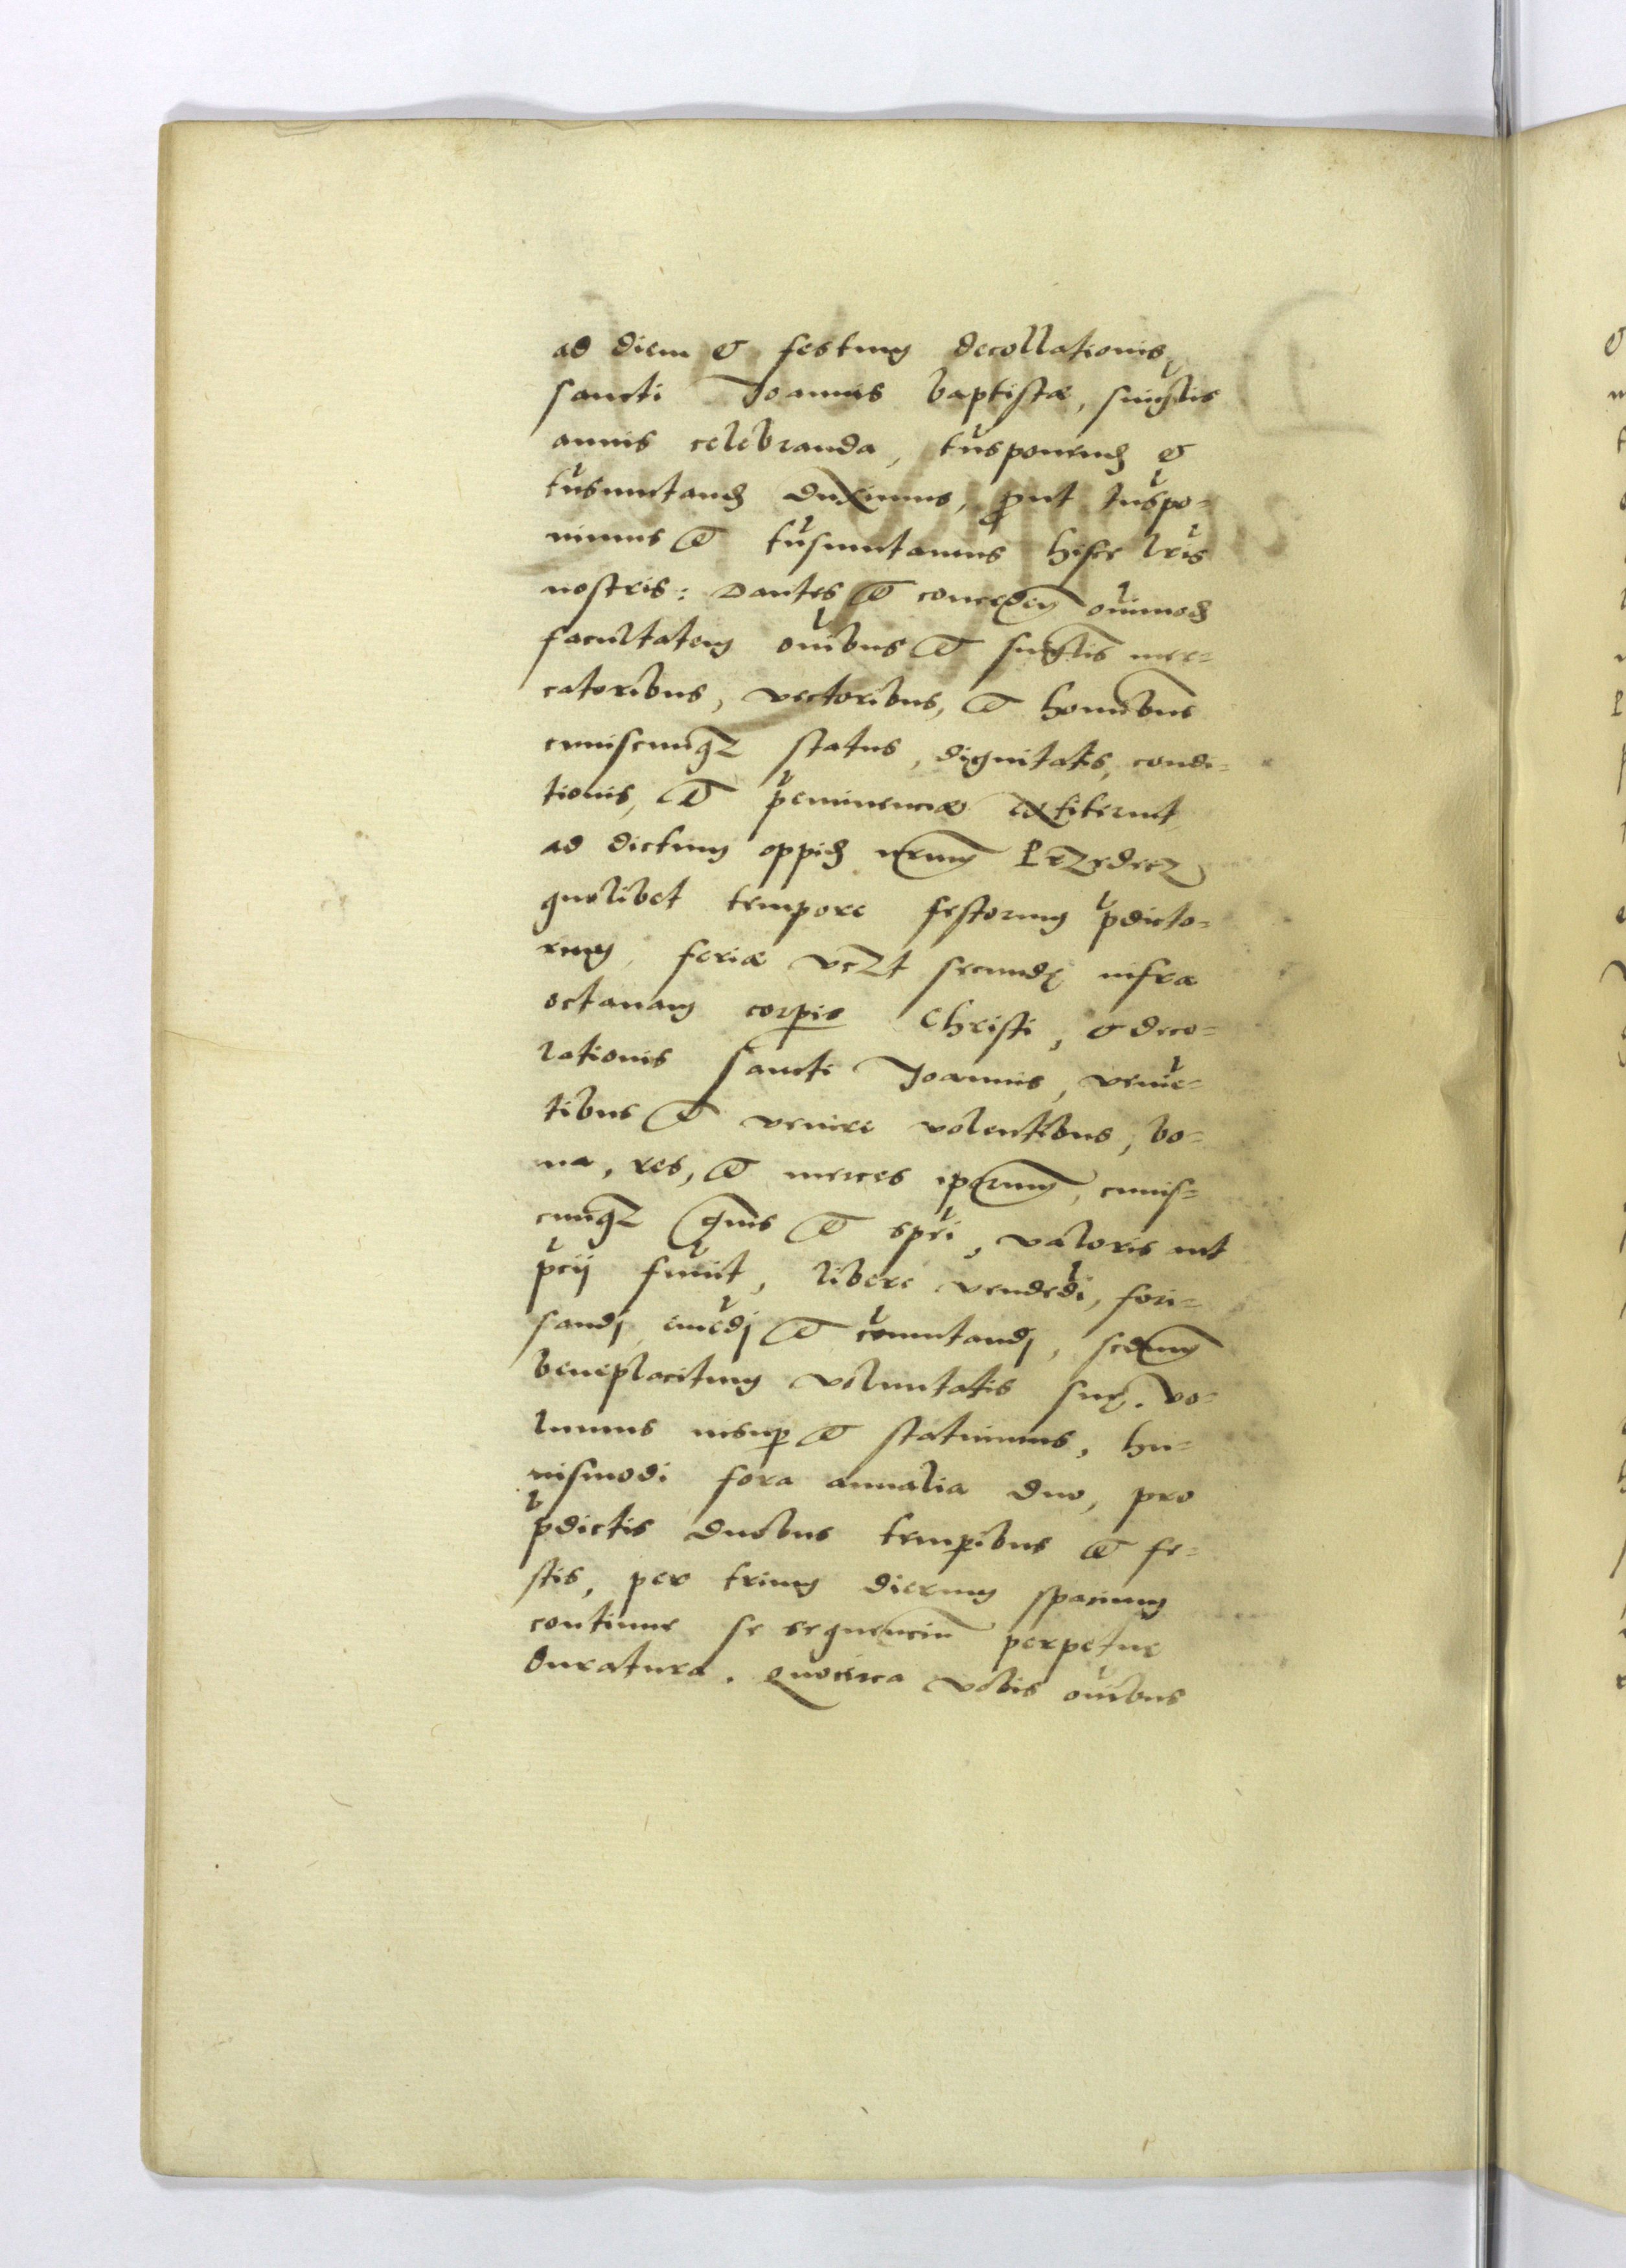 ad diem & festum decollationis
sancti Joannis baptistæ, singlis
annis celebranda, tnsponend &
tnsmutand duximus, prout tnspo-
nimus et tnsmutamus hisce lris
nostris: Dantes et conceden omnimod
facultatem omibus et singlis mer-
catoribus, vectoribus, et hominibus
cuiuscunqz status, dignitatis, condi-
tionis, et peminenciæ extiterint
ad dictum oppid nrum
quolibet tempore festorum pdicto-
rum, feriæ vczt secundę infra
octauam corpis Christi, & deco-
lationis sancti Joannis, venie-
tibus et venire volentibus, bo-
na, res, et merces iparum, cuius-
cunqz gnis et spei, valoris aut
pcij fuint, libere vendedi, fori-
sandj, emedj et comutandj, scdum
beneplacitum voluntatis suę. vo-
lumus insup et statuimus, hu-
iusmodi fora annalia duo, pro
pdictis duobus tempibus et fe-
stis, per trium dierum spacium
continue se sequencium perpetue
duratura. Quocirca vobis omibus